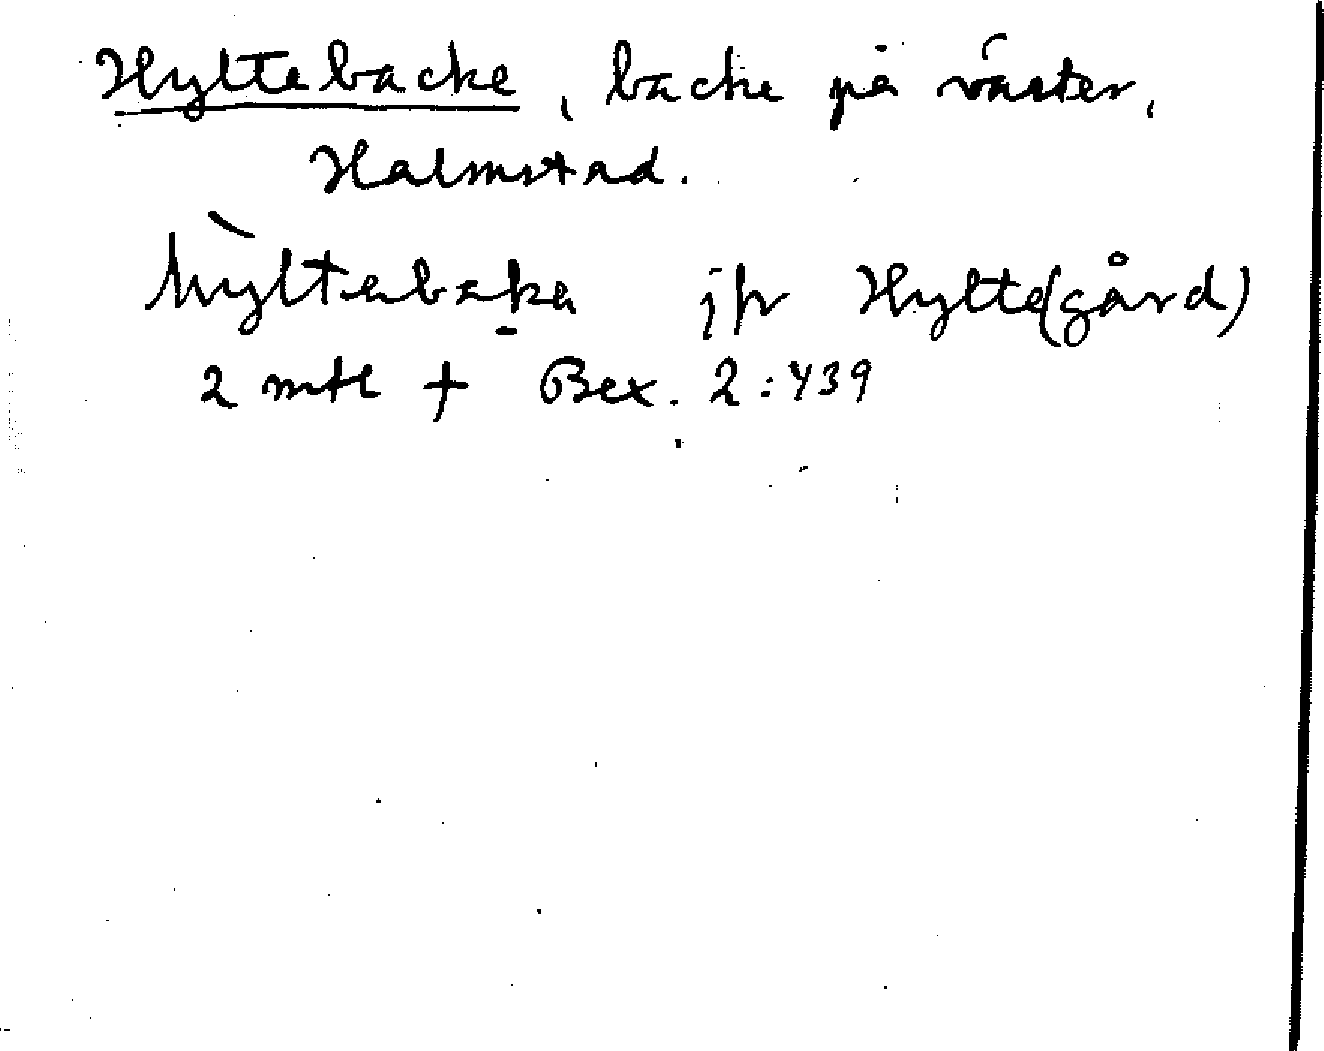 Hyltebacke, backe på väster,
Halmstad.
hỳltabaka jfr Hylte(gård)
2 mtl + Bex. 2:439